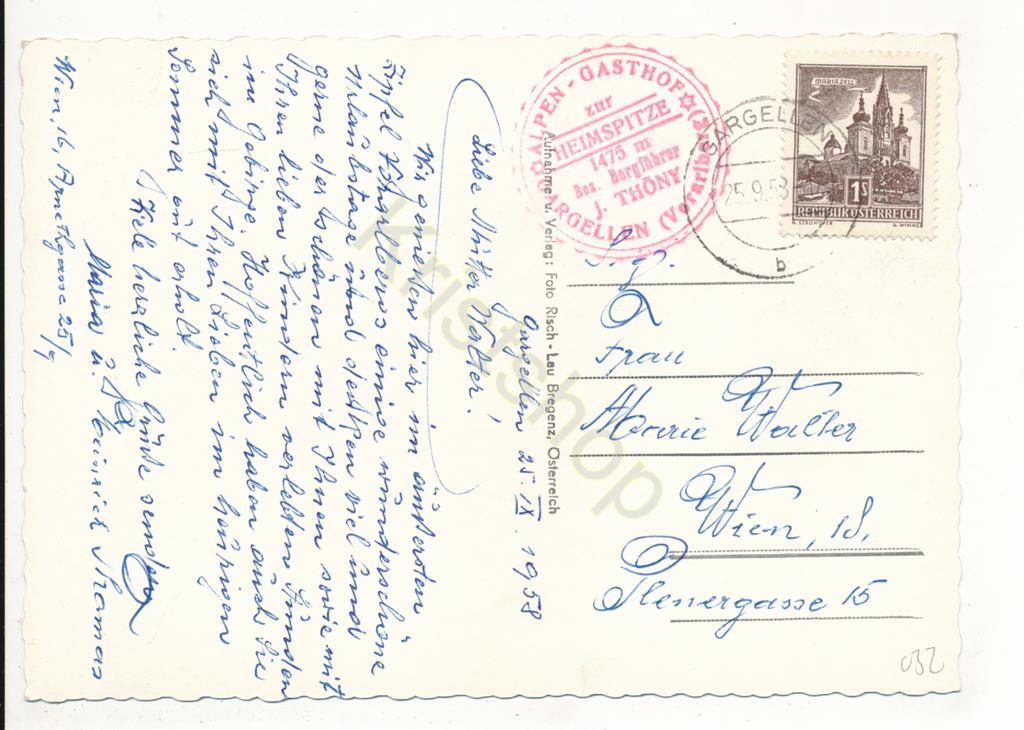 Gargellen 25. IX. 1958
Liebe Mutter Walter!
Wir genießen hier im äußersten
Zipfel Vorarlbergs einige wunderschöne
Urlaubstage und denken viel und
gerne der schönen mit Ihnen sowie mit
Ihren lieben Kindern verlebten Stunden
im Gebirge. Hoffentlich haben auch Sie
sich mit Ihren Lieben im heurigen
Sommer gut erholt.
Viele herzliche Grüße senden
Maria u. Heinrich Thomas
Wien, 16, Arnethgasse 25/9
Aufnahme u. Verlag: Foto Risch-Lau Bregenz, Österreich
ALPEN-GASTHOF
zur
HEIMSPITZE
1475 m
Bes. Bergführer
J. THÖNY
GARGELLEN (Vorarlbg.)
GARGELLEN
25.9.58
b
MARIAZELL
1S
REPUBLIK ÖSTERREICH
R. STROHOFER
G. WIMMER
Frau
Marie Walter
Wien, 18.
Plenergasse 15
032
Kristshop